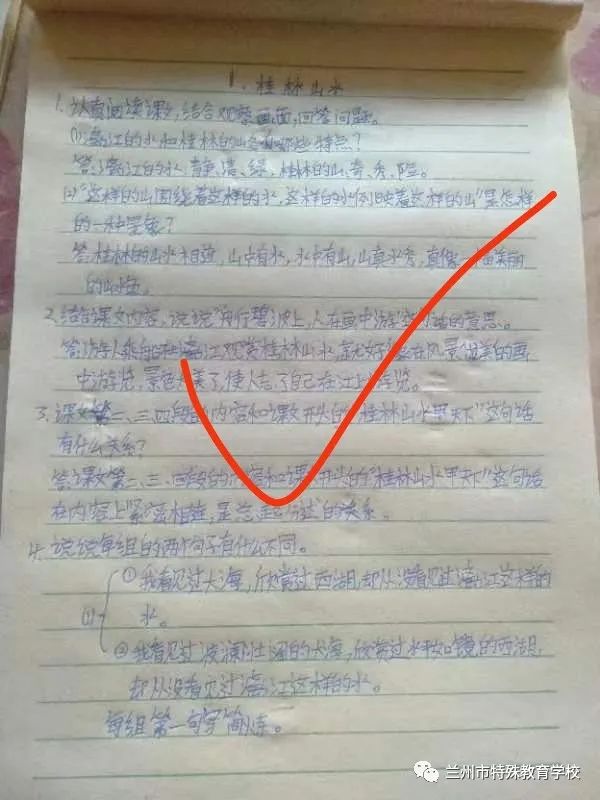 1. 桂林山水
1. 认真阅读课文,结合观察画面,回答问题。
(1)漓江的水和桂林的山各有哪些特点?
答:漓江的水,静、清、绿,桂林的山,奇、秀、险。
(2)"这样的山围绕着这样的水,这样的水倒映着这样的山"是怎样
的一种景象?
答:桂林的山水相连,山中有水,水中有山,山真水秀,真像一幅美丽
的山水画。
2. 结合课文内容,说说"舟行碧波上,人在画中游"这句话的意思。
答:游人乘舟和漓江观赏桂林山水,就好像在风景优美的画
中游览,景色太美了,使人忘了自己在江上游览。
3. 课文第二、三、四段的内容和课文开头的"桂林山水甲天下"这句话
有什么关系?
答:课文第二、三、四段的内容和课文开头的"桂林山水甲天下"这句话
在内容上紧密相连,是总起分述的关系。
4. 说说每组的两个句子有什么不同。
①我看见过大海,欣赏过西湖,却从没看见过漓江这样的
(1)
水。
②我看见过波澜壮阔的大海,欣赏过水平如镜的西湖,
却从没看见过漓江这样的水。
每组第一句写简炼。
兰州市特殊教育学校